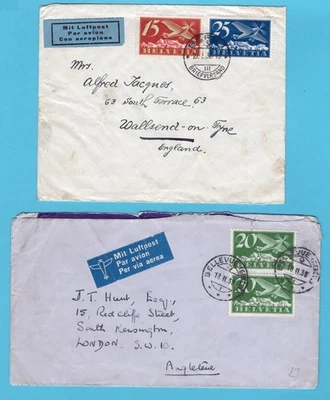 Mit Luftpost
Par avion
Con aeroplano
15
HELVETIA
25
HELVETIA
BRIEFVERSAND
III
Mrs.
Alfred Jacques,
63 South Terrace, 63
Wallsend-on Tyne
England.
Mit Luftpost
Par avion
Per via aerea
20
HELVETIA
HELVETIA
BELLEVUE
J.T. Hunt, Esq.,
15, Redcliffe Street,
South Kensington,
LONDON. S.W.10.
Angleterre